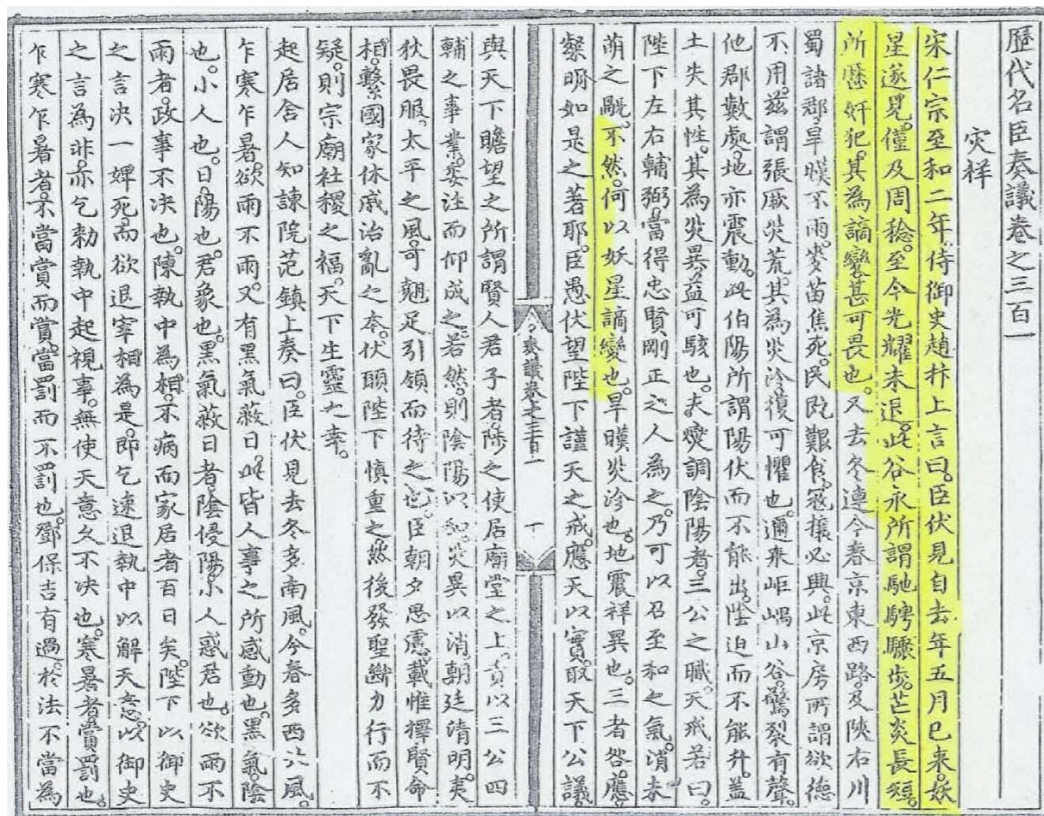 歷代名臣奏議卷之三百一
灾祥
宋仁宗至和二年侍御史趙抃上言曰臣伏見自去年五月已來妖
星遂見僅及周稔至今光耀未退此谷永所謂馳騁驟步芒炎長短
所歷奸犯其為謫變甚可畏也又去冬連今春京東西路及陝右川
蜀諸郡旱暵不雨麥苗焦死民既艱食寇攘必興此京房所謂欲德
不用茲謂張厥灾荒其為灾沴復可懼也邇來岠嵎山谷驚裂有聲
他郡數處地亦震動此伯陽所謂陽伏而不能出陰迫而不能升盖
土失其性其為灾異益可駭也夫燮調陰陽者三公之職天戒若曰
陛下左右輔弼當得忠賢剛正之人為之乃可以召至和之氣消未
萌之眚不然何以妖星謫變也旱暵灾沴也地震祥異也三者咎應
粲明如是之著耶臣愚伏望陛下謹天之戒應天以實取天下公議
奏議卷之三百一
與天下瞻望之所謂賢人君子者陟之使居廟堂之上責以三公四
輔之事業委注而仰成之若然則陰陽以和灾異以消朝廷清明夷
狄畏服太平之風可翹足引領而待之也臣朝夕思慮載惟擇賢命
相繫國家休戚治亂之本伏願陛下慎重之然後發聖斷力行而不
疑則宗廟社稷之福天下生靈之幸
起居舍人知諫院范鎮上奏曰臣伏見去冬多南風今春多西北風
乍寒乍暑欲雨不雨又有黑氣蔽日此皆人事之所感動也黑氣陰
也小人也日陽也君象也黑氣蔽日者陰侵陽小人惑君也欲雨不
雨者政事不决也陳執中為相不病而家居者百日矣陛下以御史
之言决一婢死而欲退宰相為是即乞速退執中以解天意以御史
之言為非亦乞勑執中起視事無使天意久不决也寒暑者賞罰也
乍寒乍暑者不當賞而賞當罰而不罰也鄧保吉有過於法不當為